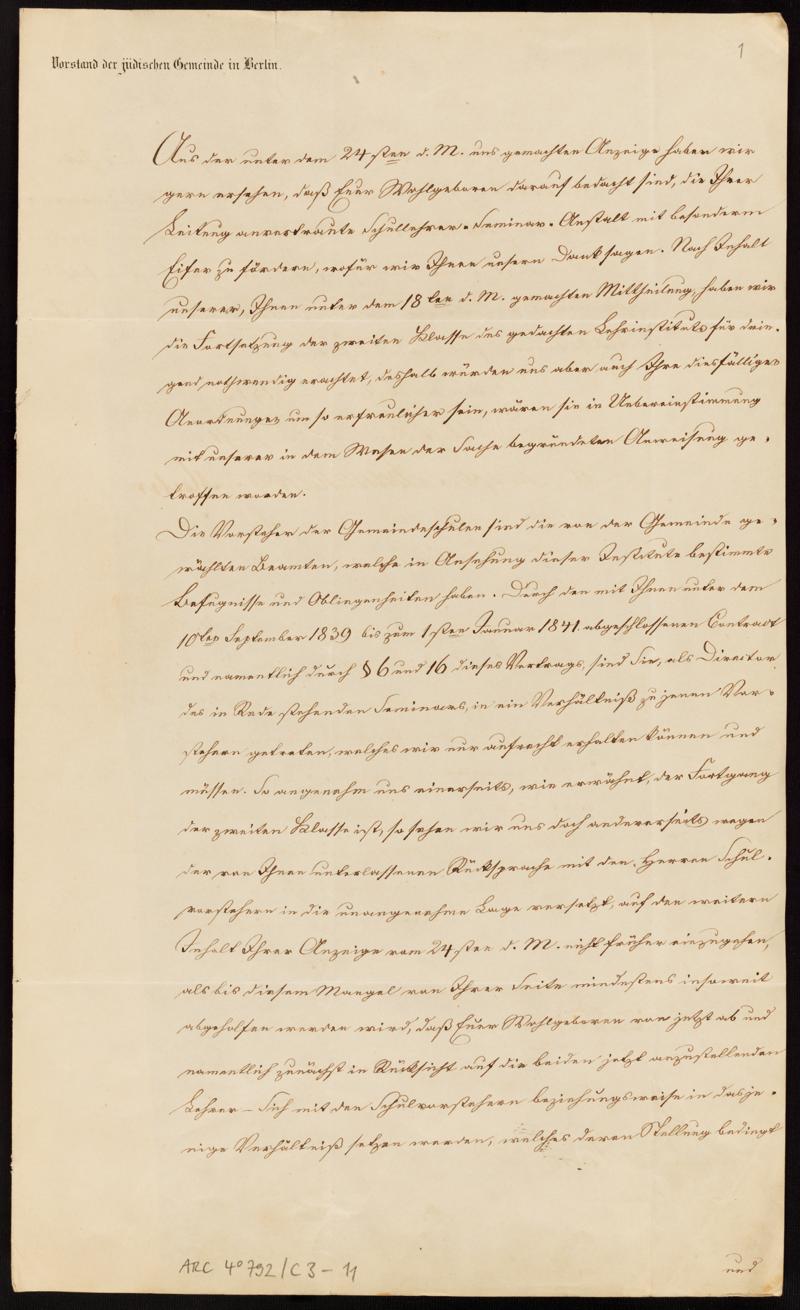 1
Vorstand der jüdischen Gemeinde in Berlin.
Aus der unter dem 24sten d. M. uns gemachten Anzeige haben wir
gern ersehen, daß Euer Wohlgeboren darauf bedacht sind, die Ihrer
Leitung anvertraute Schullehrer-Seminar-Anstalt mit besonderm
Eifer zu fördern, wofür wir Ihnen unsern Dank sagen. Nach Inhalt
unserer, Ihnen unter dem 18ten d. M. gemachten Mittheilung, haben wir
die Fortsetzung der zweiten Klasse des gedachten Lehrinstituts für drin-
gend nothwendig erachtet, deshalb würden uns aber auch Ihre diesfälligen
Anordnungen um so erfreulicher sein, wären sie in Uebereinstimmung
mit unserer in dem Wesen der Sache begründeten Anweisung ge-
troffen worden.
Die Vorsteher der Gemeindeschulen sind die von der Gemeinde ge-
wählten Beamten, welche in Ansehung dieser Institute bestimmte
Befugnisse und Obliegenheiten haben. Durch den mit Ihnen unter dem
10ten September 1839 bis zum 1sten Januar 1841 abgeschlossenen Contract
und namentlich durch § 6 und 16 dieses Vertrags, sind Sie, als Director
des in Rede stehenden Seminars, in ein Verhältniß zu jenen Vor-
stehern getreten, welches wir nur aufrecht erhalten können und
müssen. So angenehm uns einerseits, wie erwähnt, der Fortgang
der zweiten Klasse ist, so sehen wir uns doch andererseits wegen
der von Ihnen unterlassenen Rücksprache mit den Herren Schul-
vorstehern in die unangenehme Lage versetzt, auf den weitern
Inhalt Ihrer Anzeige vom 24sten d. M. nicht früher einzugehen,
als bis diesem Mangel von Ihrer Seite mindestens insoweit
abgeholfen werden wird, daß Euer Wohlgeboren von jetzt ab und
namentlich zunächst in Rücksicht auf die beiden jetzt anzustellenden
Lehrer – Sich mit den Schulvorstehern beziehungsweise in dasje-
nige Verhältniß setzen werden, welches deren Stellung bedingt
und
ARC 4° 792/C3 - 11